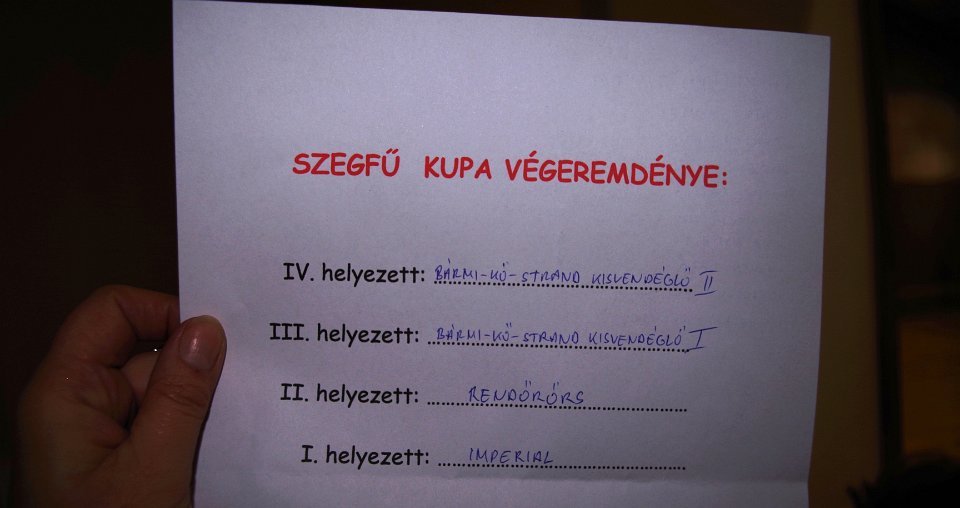 SZEGFŰ KUPA VÉGEREMDÉNYE:
IV. helyezett: BÁRMI-KŐ-STRAND KISVENDÉGLŐ II
III. helyezett: BÁRMI-KŐ-STRAND KISVENDÉGLŐ I
II. helyezett: RENDŐRŐRS
I. helyezett: IMPERIAL